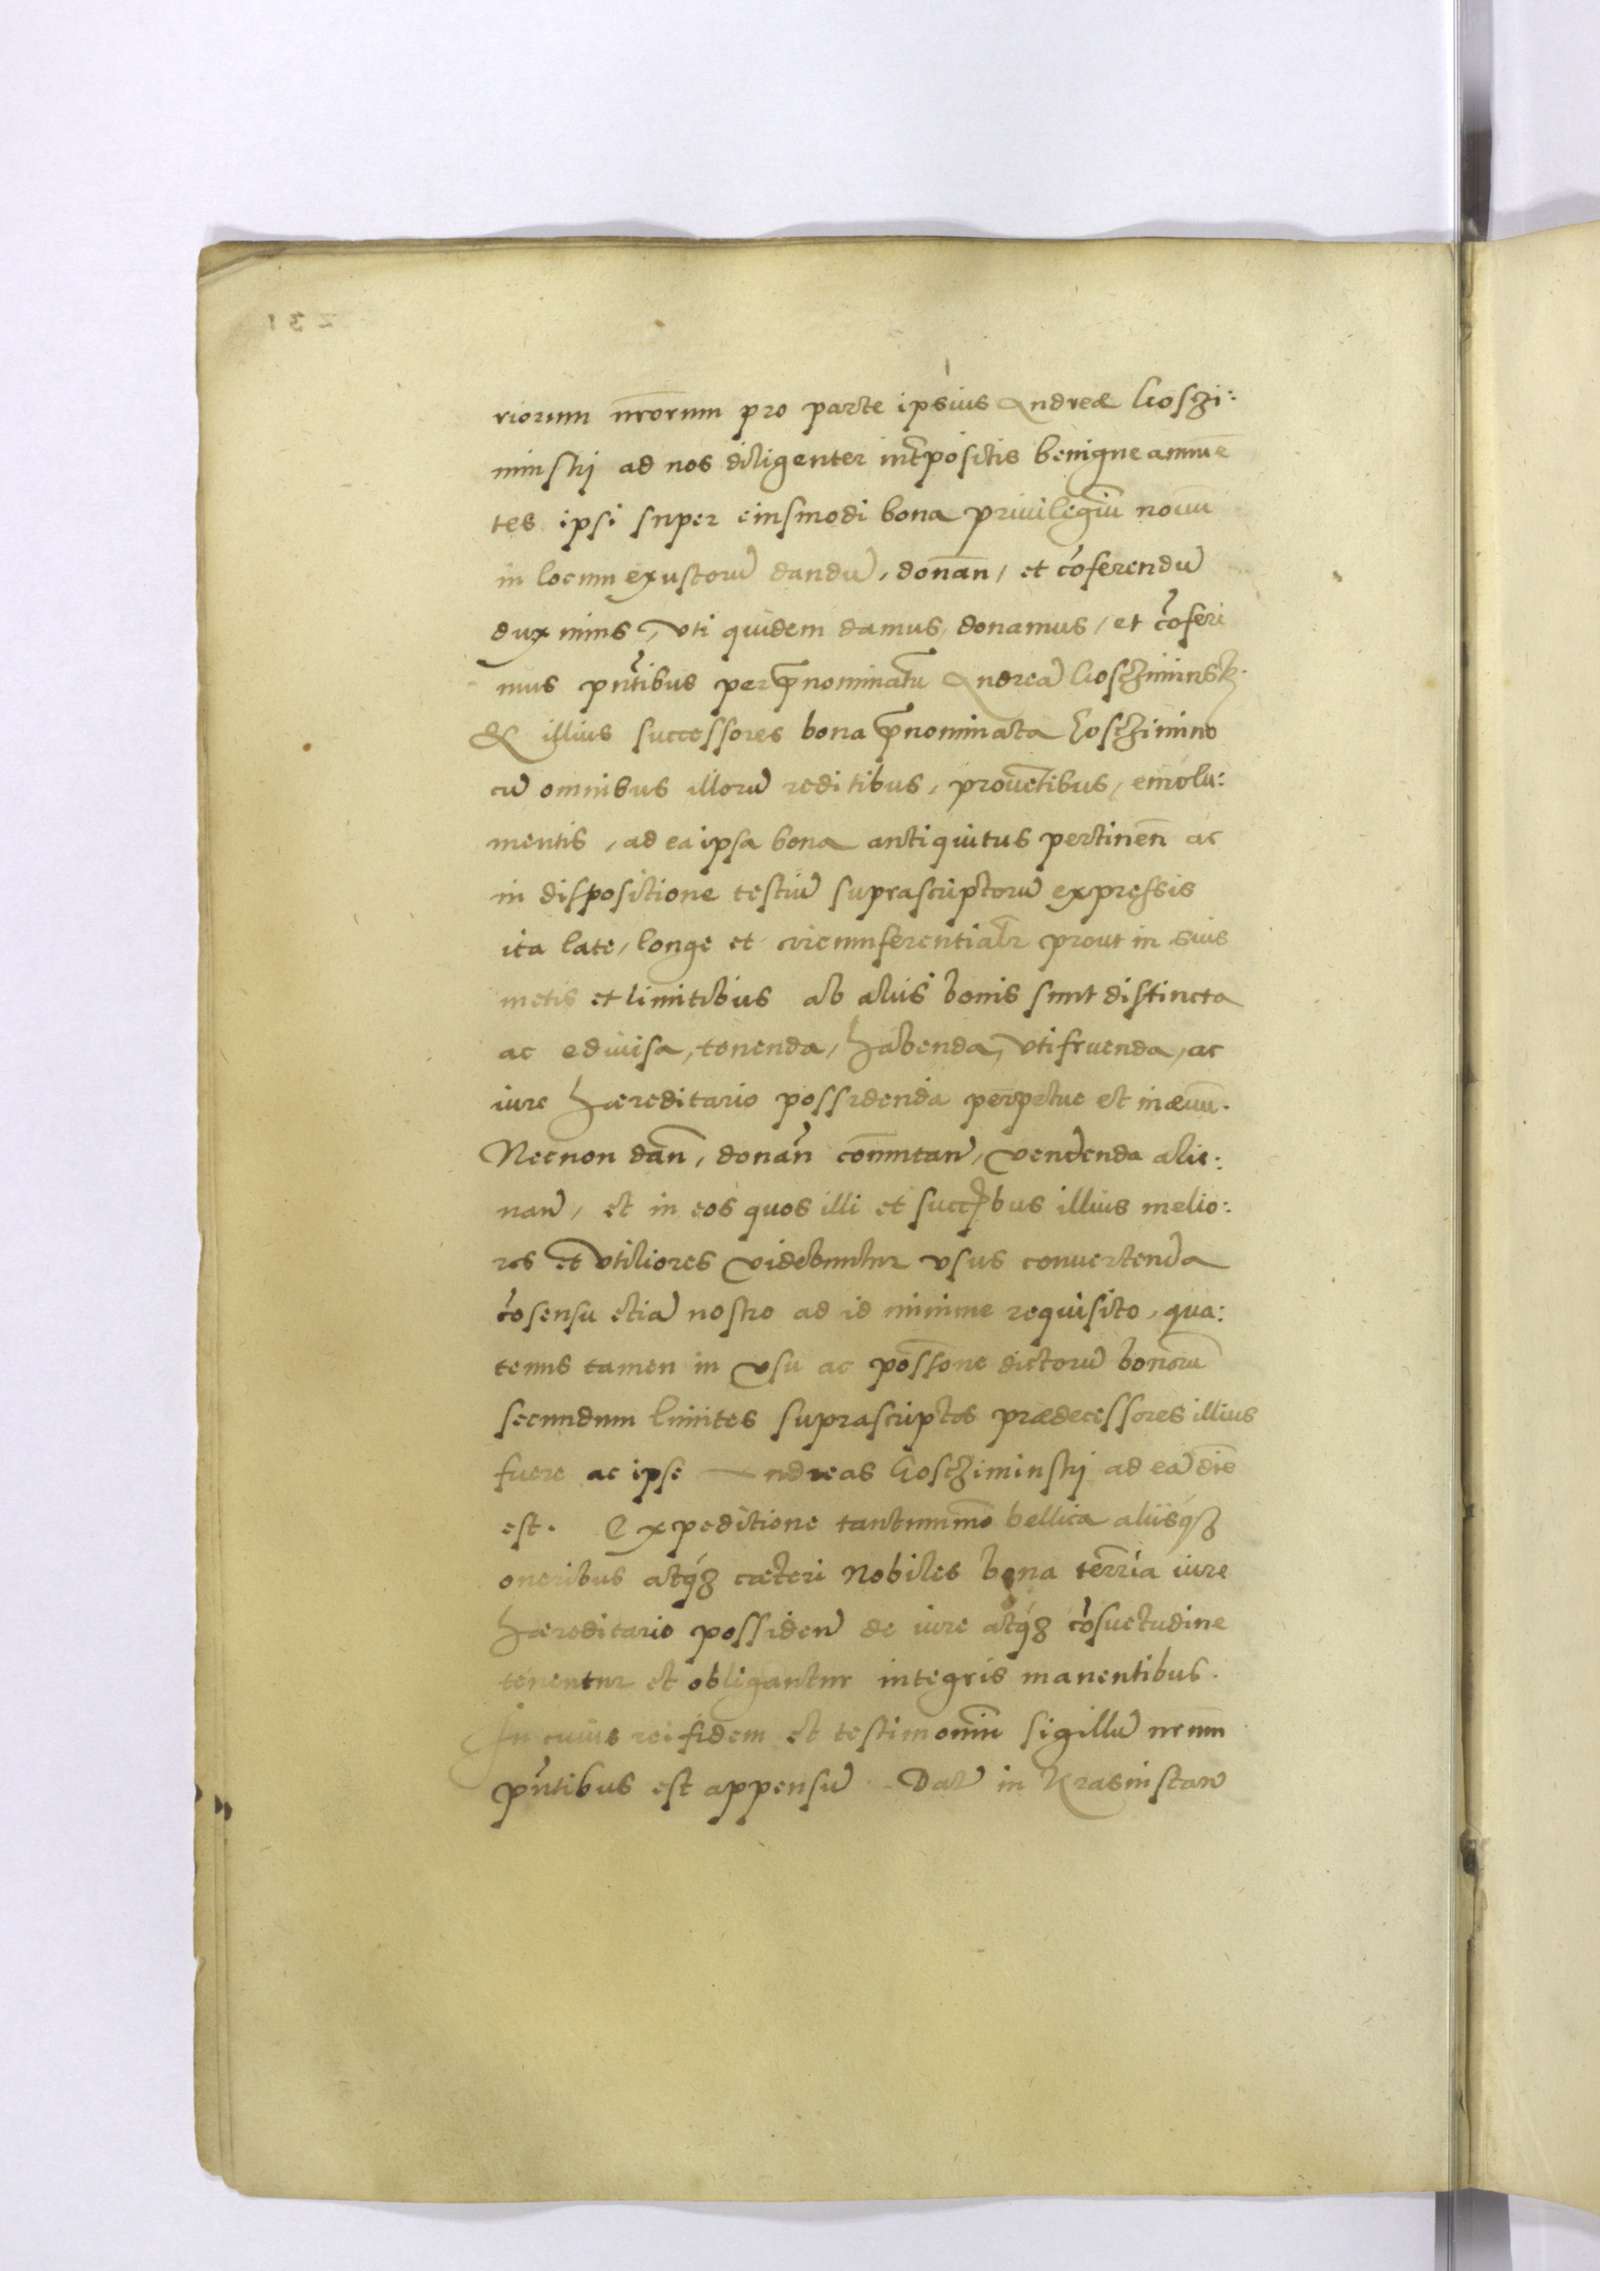 riorum nr̄orum pro parte ipsius Andreæ Goszi:
minskj ad nos diligenter int̄positis benigne annuē
tes ipsi super eiusmodi bona priuilegiū nouū
in locum exustorū dandū, donan̄, et cōferendū
duximus, vti quidem damus, donamus, et cōferi
mus pn̄tibus per p̄nominatū Andreā Gosziminsk
& illius successores bona p̄nominata Goszimino
cū omnibus illorū reditibus, prouētibus, emolu:
mentis, ad ea ipsa bona antiquitus pertinen̄ ac
in dispositione testiū suprascriptorū expressis
ita late, longe et circumferentialr̄ prout in suis
metis et limitibus ab aliis bonis sunt distincta
ac ediuisa, tenenda, habenda, vtifruenda, ac
iure hæreditario possidenda perpetue et in æuū.
Necnon dan̄, donan̄ com̄utan̄, vendenda alie:
nan̄, et in eos quos illi et succ̄ibus illius melio:
res et vtiliores videbuntur vsus conuertenda
cōsensu etiā nostro ad id minime requisito, qua:
tenus tamen in vsu ac poss̄one dictorū bonorū
secundum limites suprascriptos prædecessores illius
fuere ac ipse Andreas Goszyminskj ad eā diē
est. Expeditione tantummō bellica aliisq́ꝫ
oneribus atq́ꝫ cæteri Nobiles bona terr̄ia iure
hæreditario possiden̄ de iure atq́ꝫ cōsuetudine
tenentur et obligantur integris manentibus.
In cuius rei fidem et testimoniū sigillū nr̄um
pn̄tibus est appensū. Dat̄ in Krasnistaw